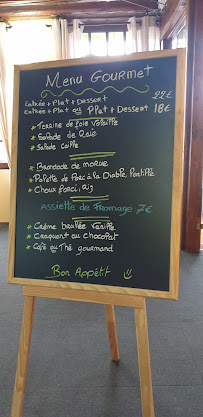 Menu Gourmet
Entrée + Plat + Dessert 22€
Entrée + Plat ou Plat + Dessert 18€
* Terrine de foie Volaille
* Salade de
* Salade Caille
* Brandade de morue
* Palette de Porc à la Diable,
* Choux farci, Riz
Assiette de Fromage 7€
* Crème brullée Vanille
* Craquant au chocolat
* Café ou Thé gourmand
Bon Appétit